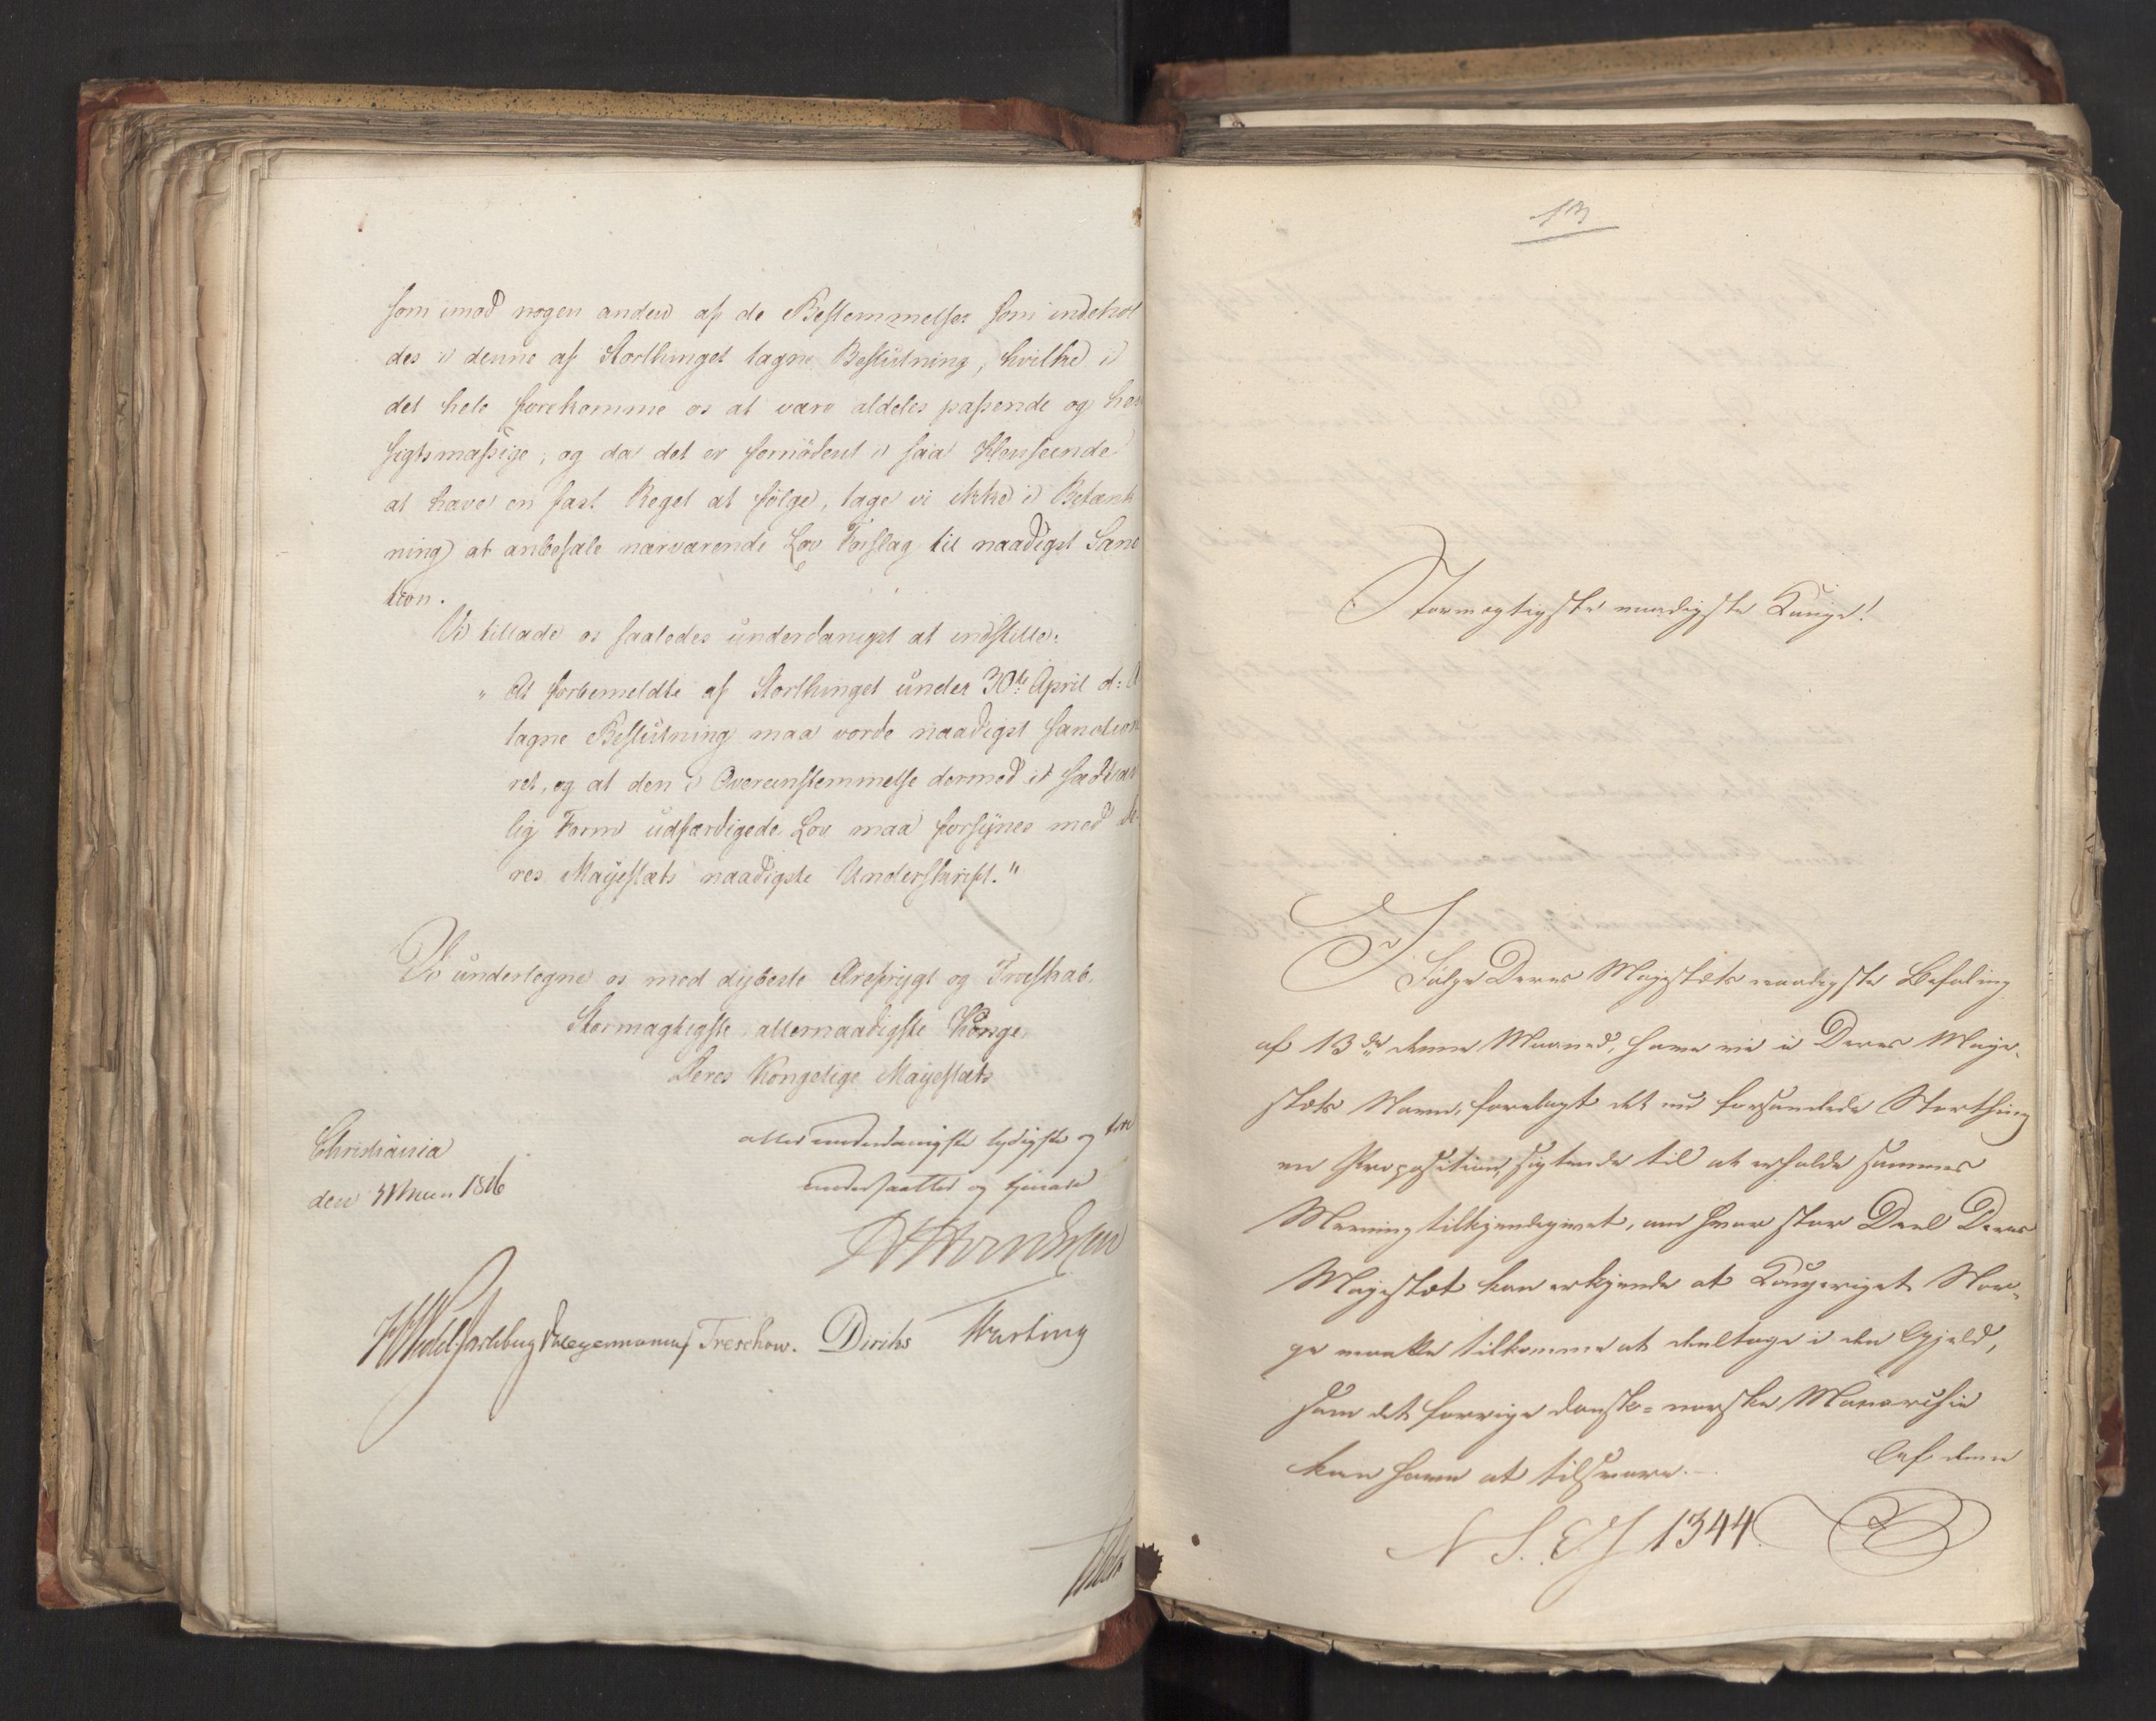 som imod nogen anden af de Bestemmelser som indehol
des i denne af Storthinget tagne Beslutning, hvilke i
det hele forekomme os at være aldeles passende og hen
sigtsmæssige; og da det er fornødent i saa Henseende
at have en fast Regel at følge, tage vi ikke i Betænk
ning at anbefale nærværende Lov Forslag til naadigst Sanc
tion.
Vi tillade os saaledes underdanigst at indstille:
" At forbemeldte af Storthinget under 30te April d: A
tagne Beslutning maa vorde naadigst sanction
ret, og at den i Overeensstemmelse dermed i sædvan
lig Form udfærdigede Lov maa forsynes med De
res Majestæts naadigste Underskrift."
Vi undertegne os med dybeste Ærefrygt og Troeskab,
Stormægtigste allernaadigste Konge,
Deres Kongelige Majestæts
Christiania
den 1816
allerunderdanigste lydigste og troe
undersaatter og tjenere
Wedel Jarlsberg Treschow. Diriks
13
Stormægtigste naadigste Konge!
I Følge Deres Majestæts naadigste Befaling
af 13de denne Maaned, have vi i Deres Maje-
stæts Navn, forelagt det nu forsamlede Storthing
en Proposition, sigtende til at erholde sammes
Mening tilkjendegivet, om hvor stor Deel Deres
Majestæt kan erkjende at Kongeriget Nor-
ge maatte tilkomme at deeltage i den Gjeld,
som det forrige dansk-norske Monarchie
kan have at tilsvare.-
Af den
N S. E. J 1344